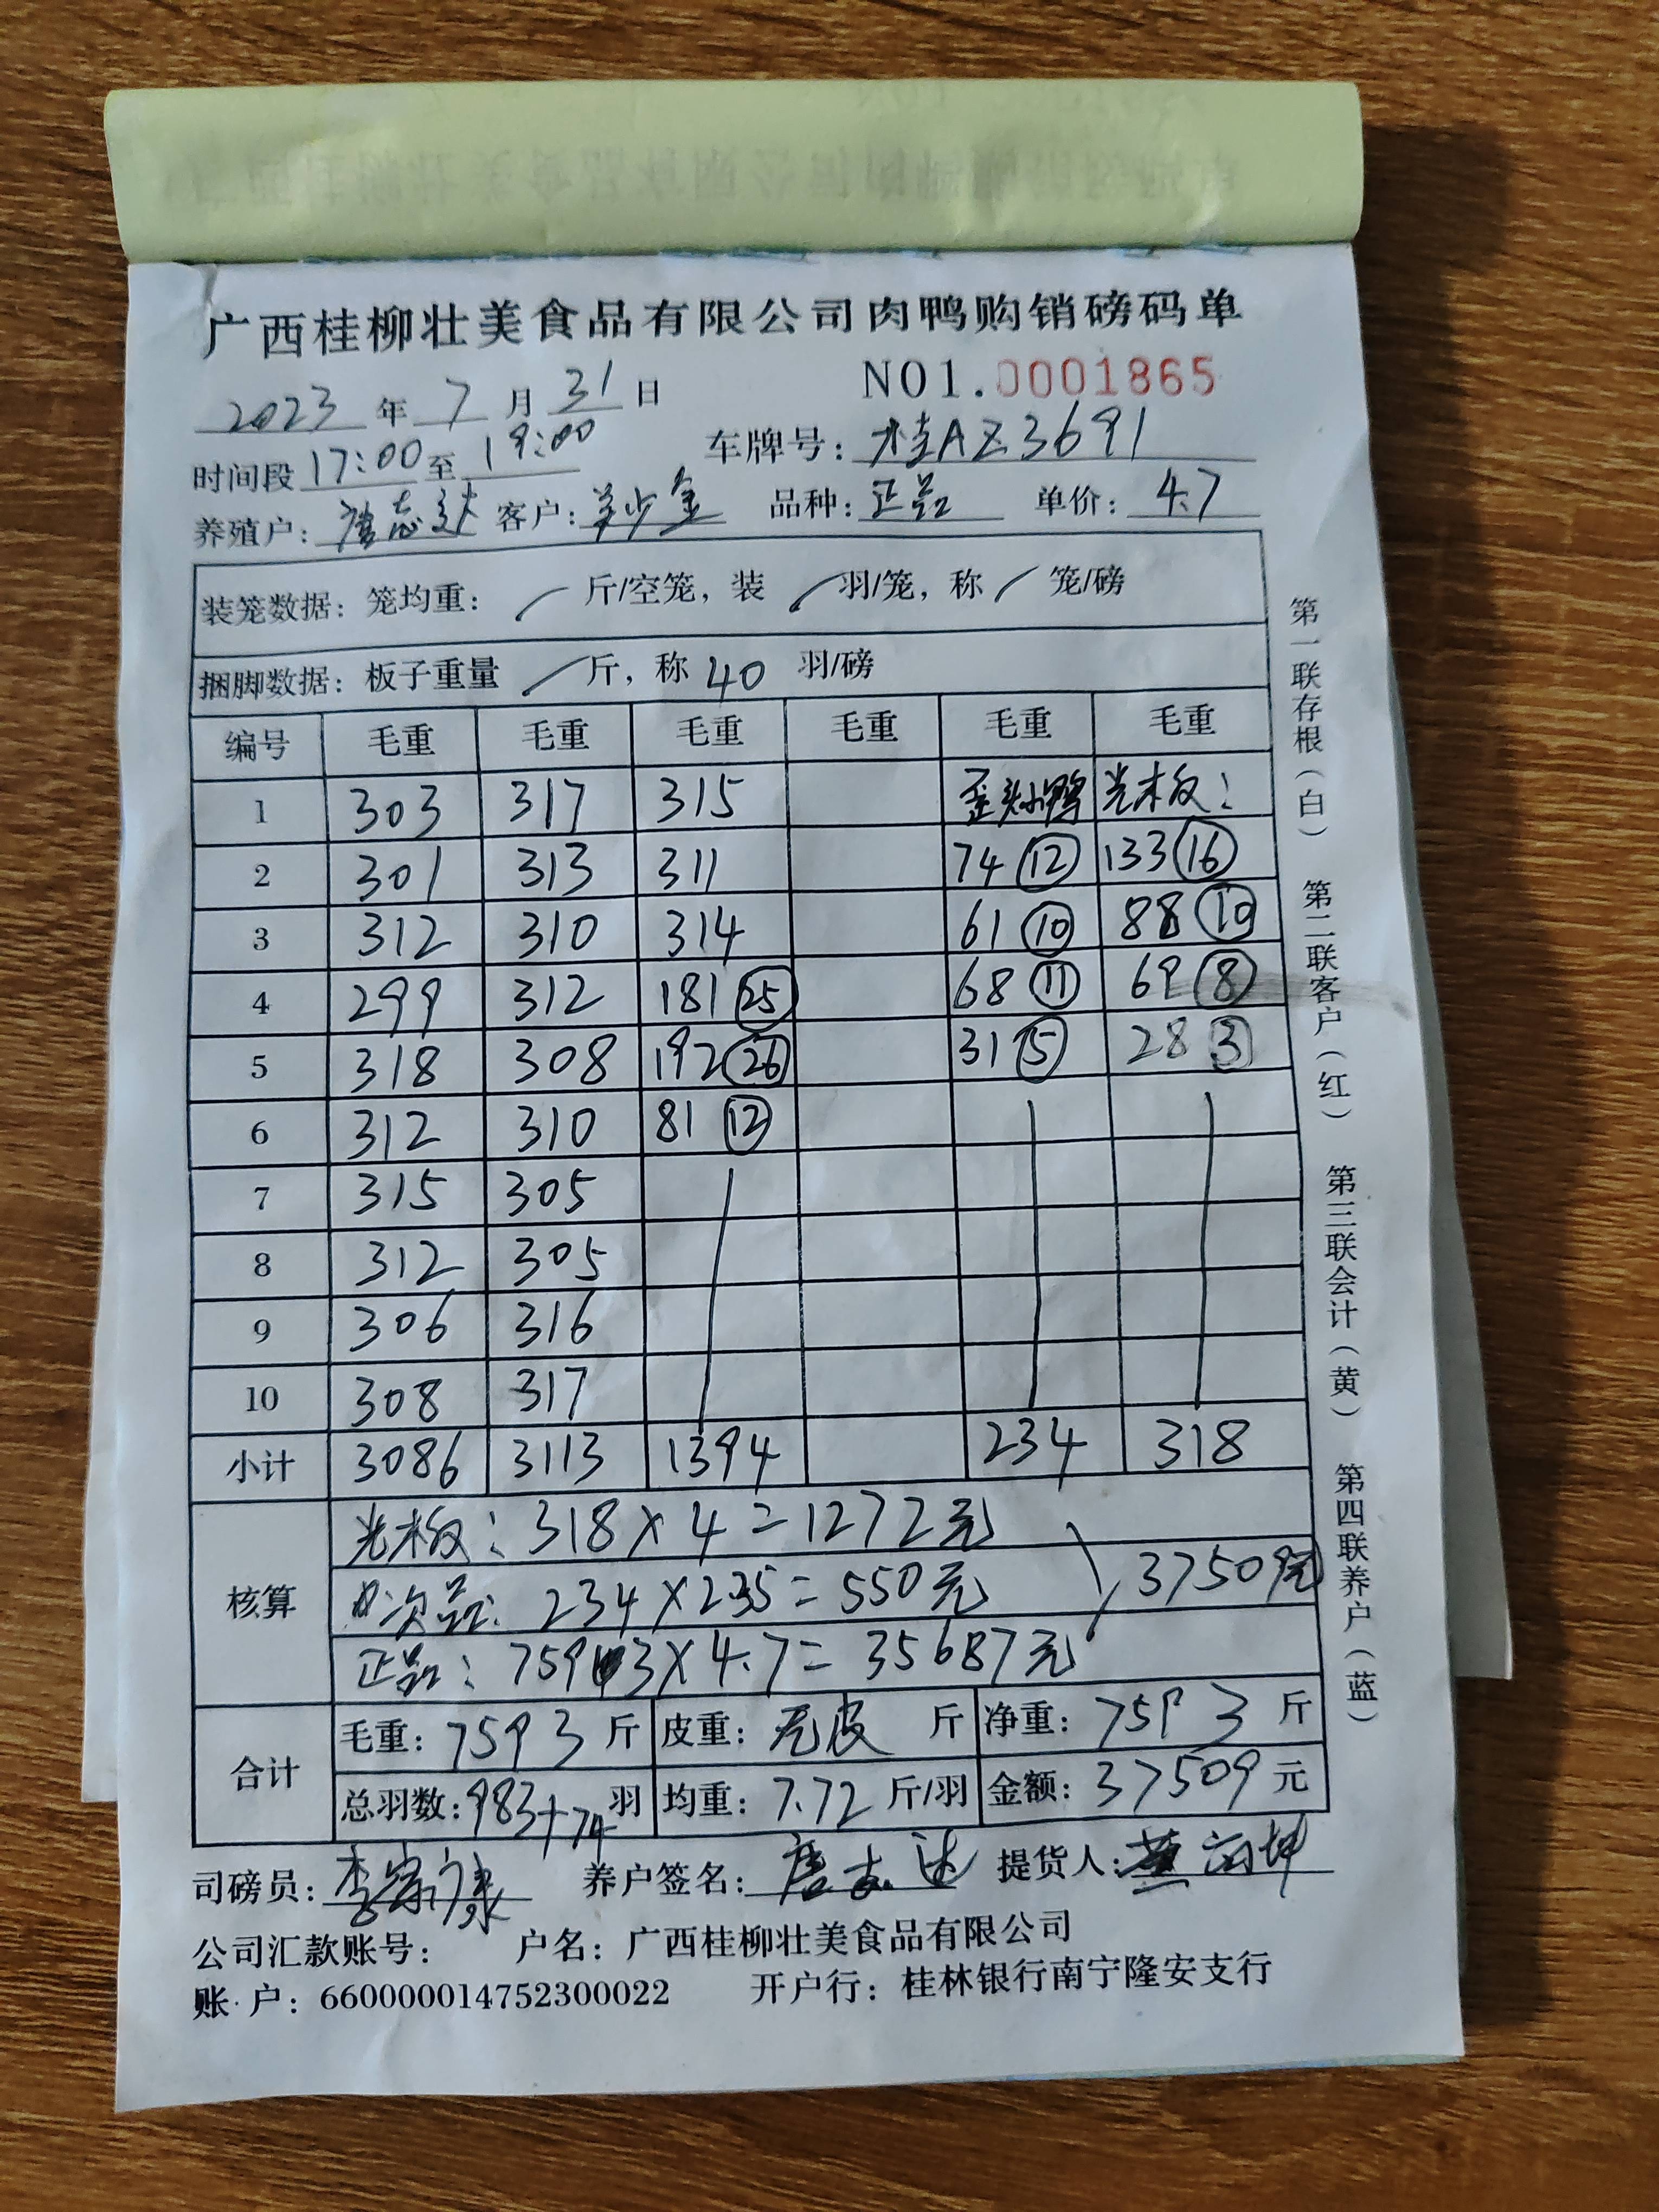 广西桂柳壮美食品有限公司肉鸭购销磅码单
2023 年 7 月 31 日 NO1.0001865
时间段 17:00 至 19:00 车牌号: 桂AZ3691
养殖户: 唐志达 客户: 少金 品种: 正品 单价: 4.7
装笼数据: 笼均重: / 斤/空笼, 装 / 羽/笼, 称 / 笼/磅
捆脚数据: 板子重量 / 斤, 称 40 羽/磅
编号 毛重 毛重 毛重 毛重 毛重 毛重
1 303 317 315 歪头小鸭 光板:
2 301 313 311 74 ⑫ 133 ⑯
3 312 310 314 61 ⑩ 88 ⑩
4 299 312 181 ㉕ 68 ⑪ 69 ⑧
5 318 308 192 ㉖ 31 ⑤ 28 ③
6 312 310 81 ⑫
7 315 305
8 312 305
9 306 316
10 308 317
小计 3086 3113 1394 234 318
核算
光板: 318×4=1272元
次品: 234×2.35=550元
正品: 7593×4.7=35687元
37509元
合计
毛重: 7593 斤 皮重: 无皮 斤 净重: 7593 斤
总羽数: 983+74 羽 均重: 7.72 斤/羽 金额: 37509 元
司磅员: 李 康 养户签名: 唐志达 提货人: 坤
公司汇款账号: 户名: 广西桂柳壮美食品有限公司
账 户: 660000014752300022 开户行: 桂林银行南宁隆安支行
第一联存根(白) 第二联客户(红) 第三联会计(黄) 第四联养户(蓝)